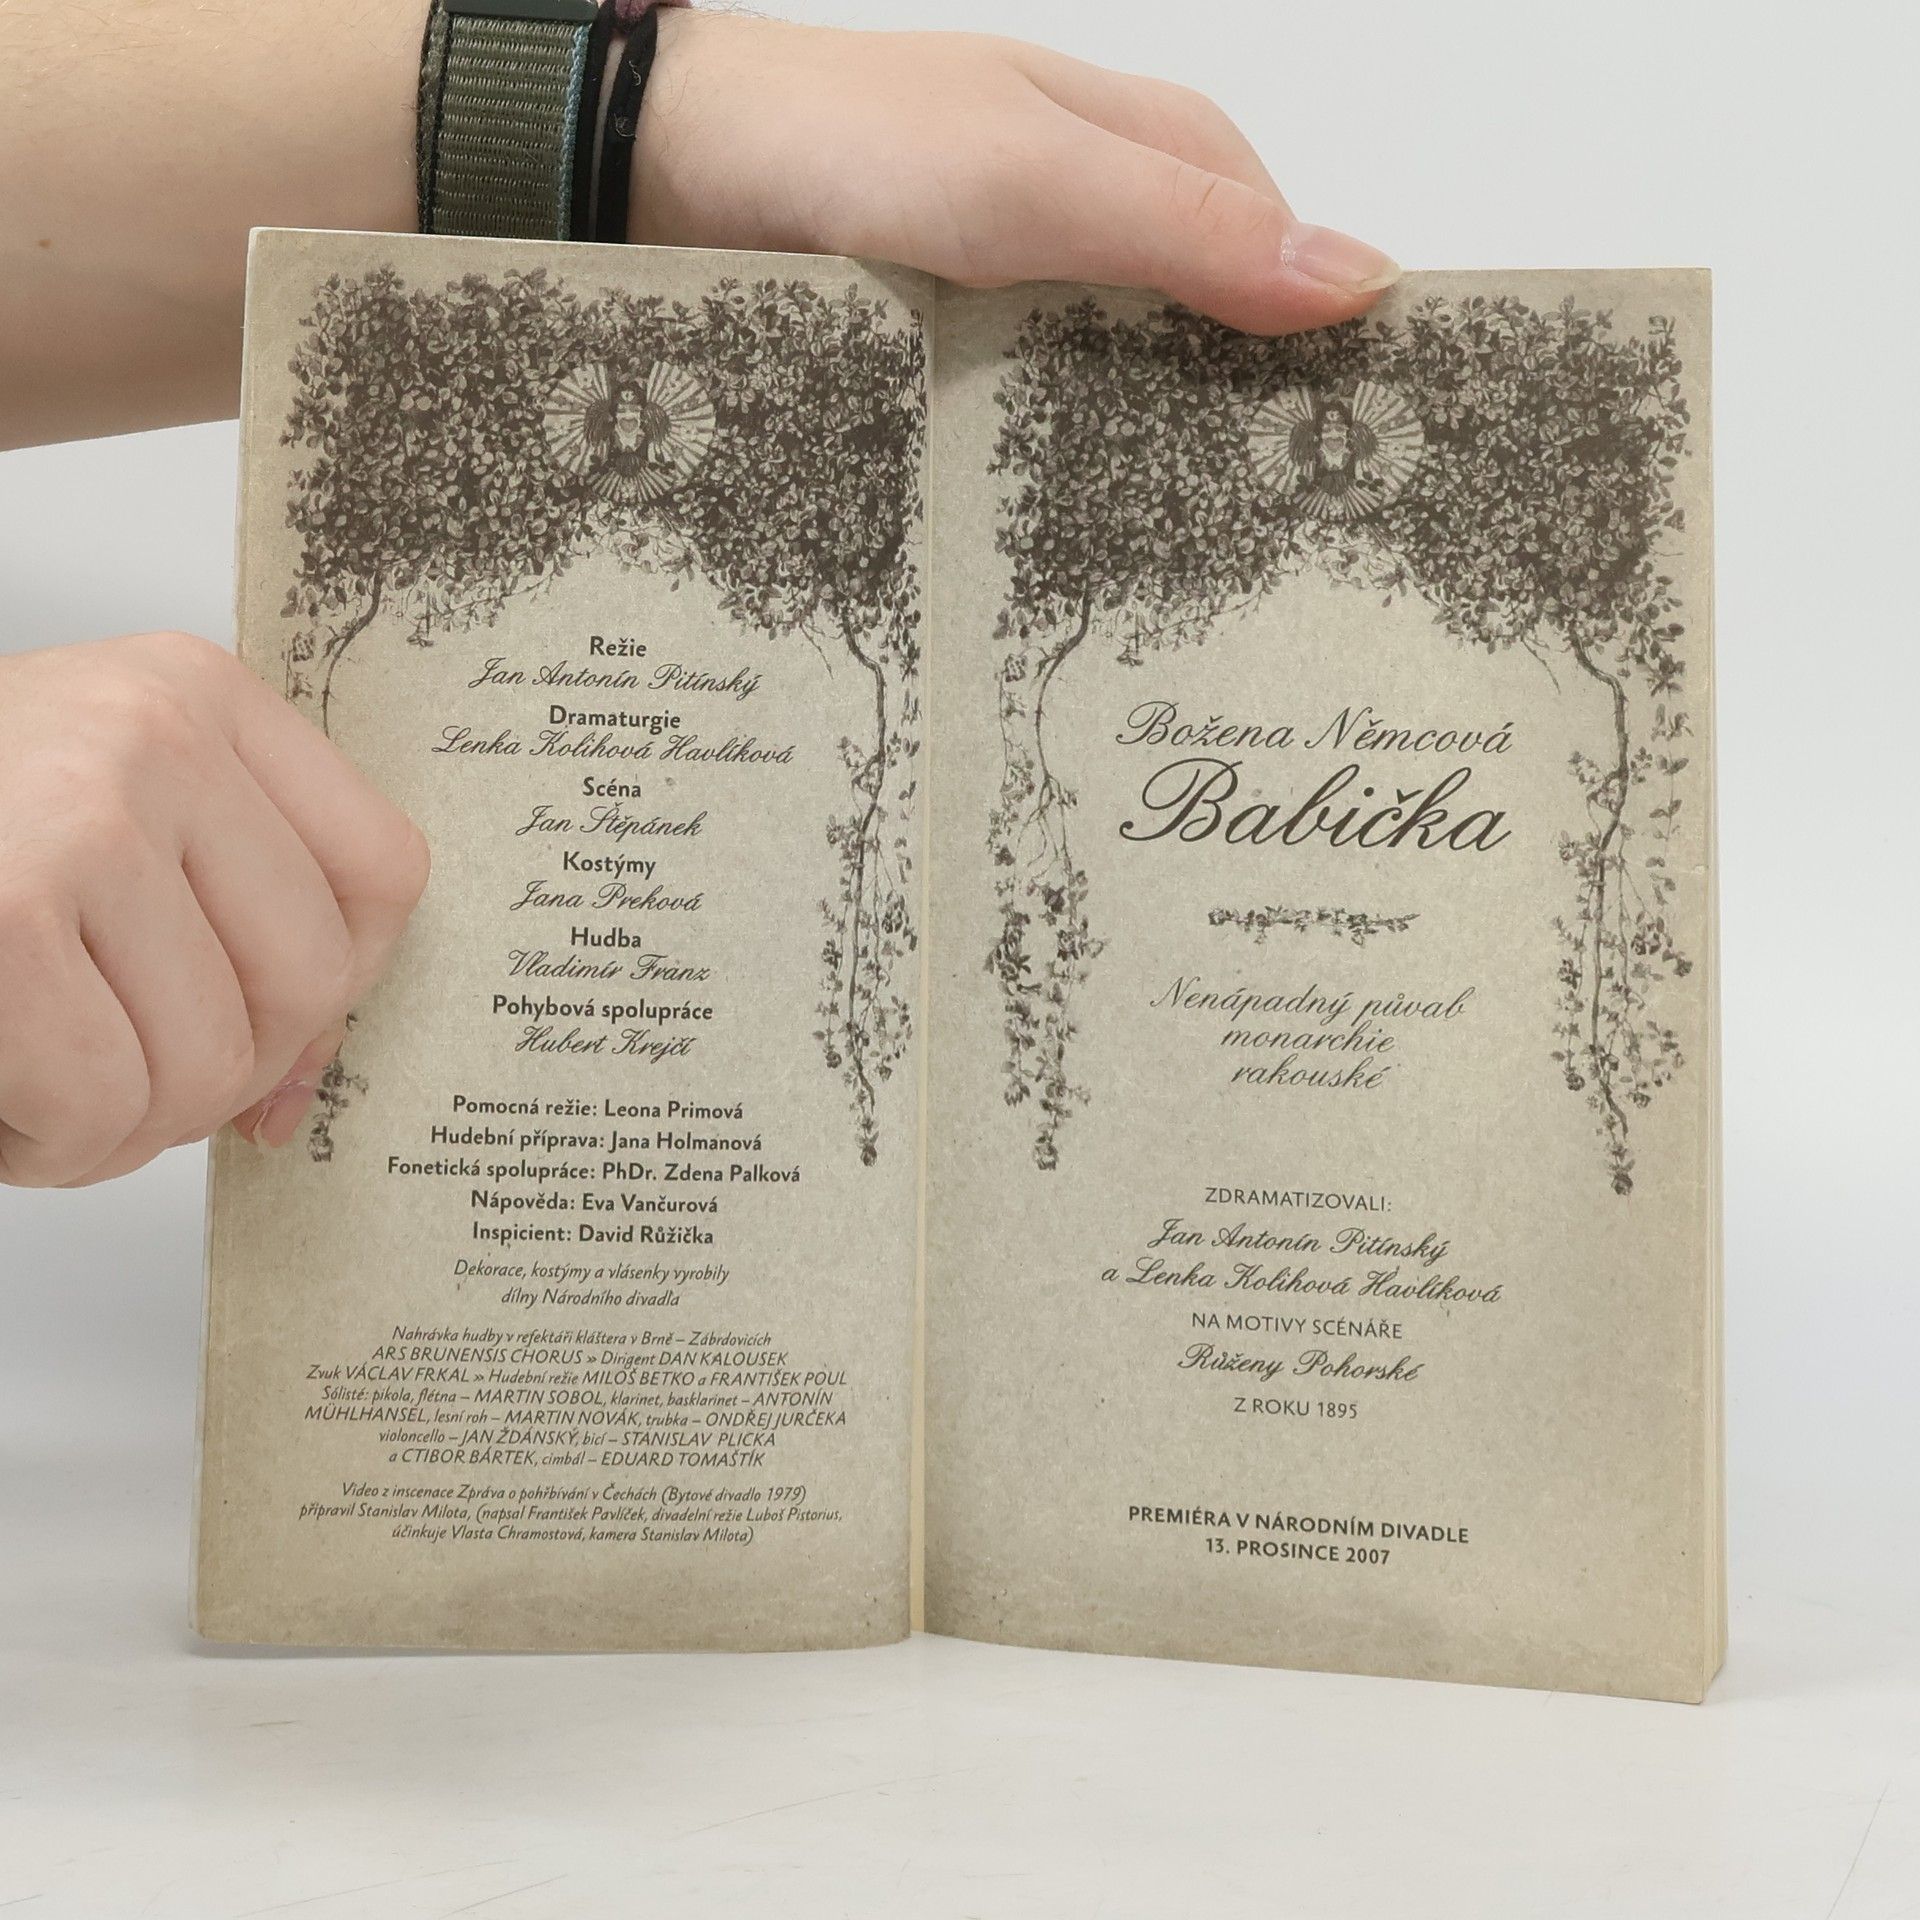 Režie
Jan Antonín Pitínský
Dramaturgie
Lenka Kolihová Havlíková
Scéna
Jan Štěpánek
Kostýmy
Jana Preková
Hudba
Vladimír Franz
Pohybová spolupráce
Hubert Krejčí
Pomocná režie: Leona Primová
Hudební příprava: Jana Holmanová
Fonetická spolupráce: PhDr. Zdena Palková
Nápověda: Eva Vančurová
Inspicient: David Růžička
Dekorace, kostýmy a vlásenky vyrobily
dílny Národního divadla
Nahrávka hudby v refektáři kláštera v Brně – Zábrdovicích
ARS BRUNENSIS CHORUS » Dirigent DAN KALOUSEK
Zvuk VÁCLAV FRKAL » Hudební režie MILOŠ BETKO a FRANTIŠEK POUL
Sólisté: pikola, flétna – MARTIN SOBOL, klarinet, basklarinet – ANTONÍN
MÜHLHANSEL, lesní roh – MARTIN NOVÁK, trubka – ONDŘEJ JURČEKA
violoncello – JAN ŽDÁNSKÝ, bicí – STANISLAV PLICKA
a CTIBOR BÁRTEK, cimbál – EDUARD TOMAŠTÍK
Video z inscenace Zpráva o pohřbívání v Čechách (Bytové divadlo 1979)
připravil Stanislav Milota, (napsal František Pavlíček, divadelní režie Luboš Pistorius,
účinkuje Vlasta Chramostová, kamera Stanislav Milota)
Božena Němcová
Babička
Nenápadný půvab
monarchie
rakouské
ZDRAMATIZOVALI:
Jan Antonín Pitínský
a Lenka Kolihová Havlíková
NA MOTIVY SCÉNÁŘE
Růženy Pohorské
Z ROKU 1895
PREMIÉRA V NÁRODNÍM DIVADLE
13. PROSINCE 2007